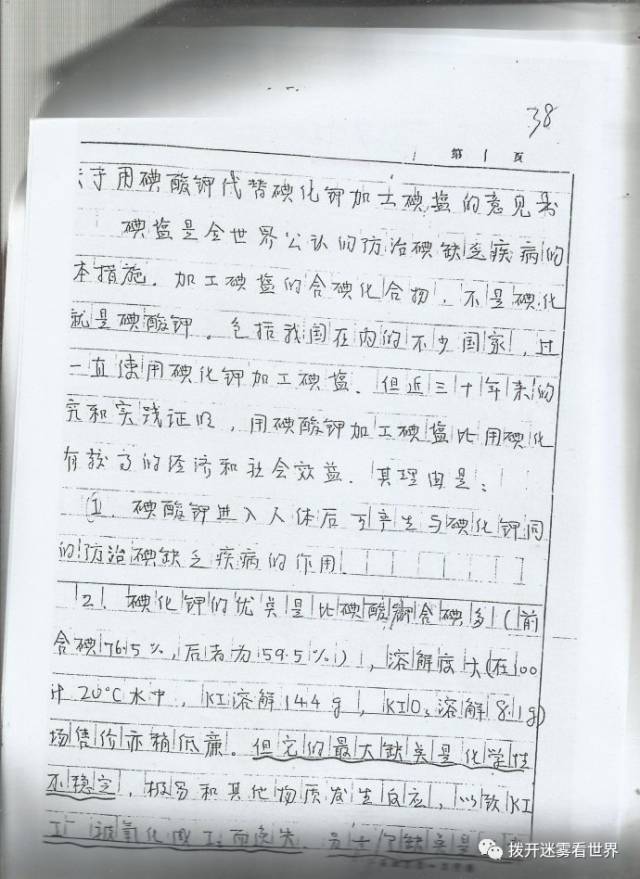 38
第 1 页
关于用碘酸钾代替碘化钾加工碘盐的意见书
碘盐是全世界公认的防治碘缺乏疾病的
本措施. 加工碘盐的含碘化合物, 不是碘化
就是碘酸钾. 包括我国在内的不少国家, 过
一直使用碘化钾加工碘盐. 但近三十年来的
究和实践证明, 用碘酸钾加工碘盐比用碘化
有较高的经济和社会效益. 其理由是:
1. 碘酸钾进入人体后可产生与碘化钾同
的防治碘缺乏疾病的作用.
2. 碘化钾的优点是比碘酸钾含碘多 (前
含碘76.5%, 后者为59.5%), 溶解度大(在100
20°C水中, KI溶解144g, KIO3溶解8.1g)
场售价亦稍低廉. 但它的最大缺点是化学性
不稳定, 极易和其他物质发生反应, 以致KI
被氧化成I2而逸失.
拨开迷雾看世界